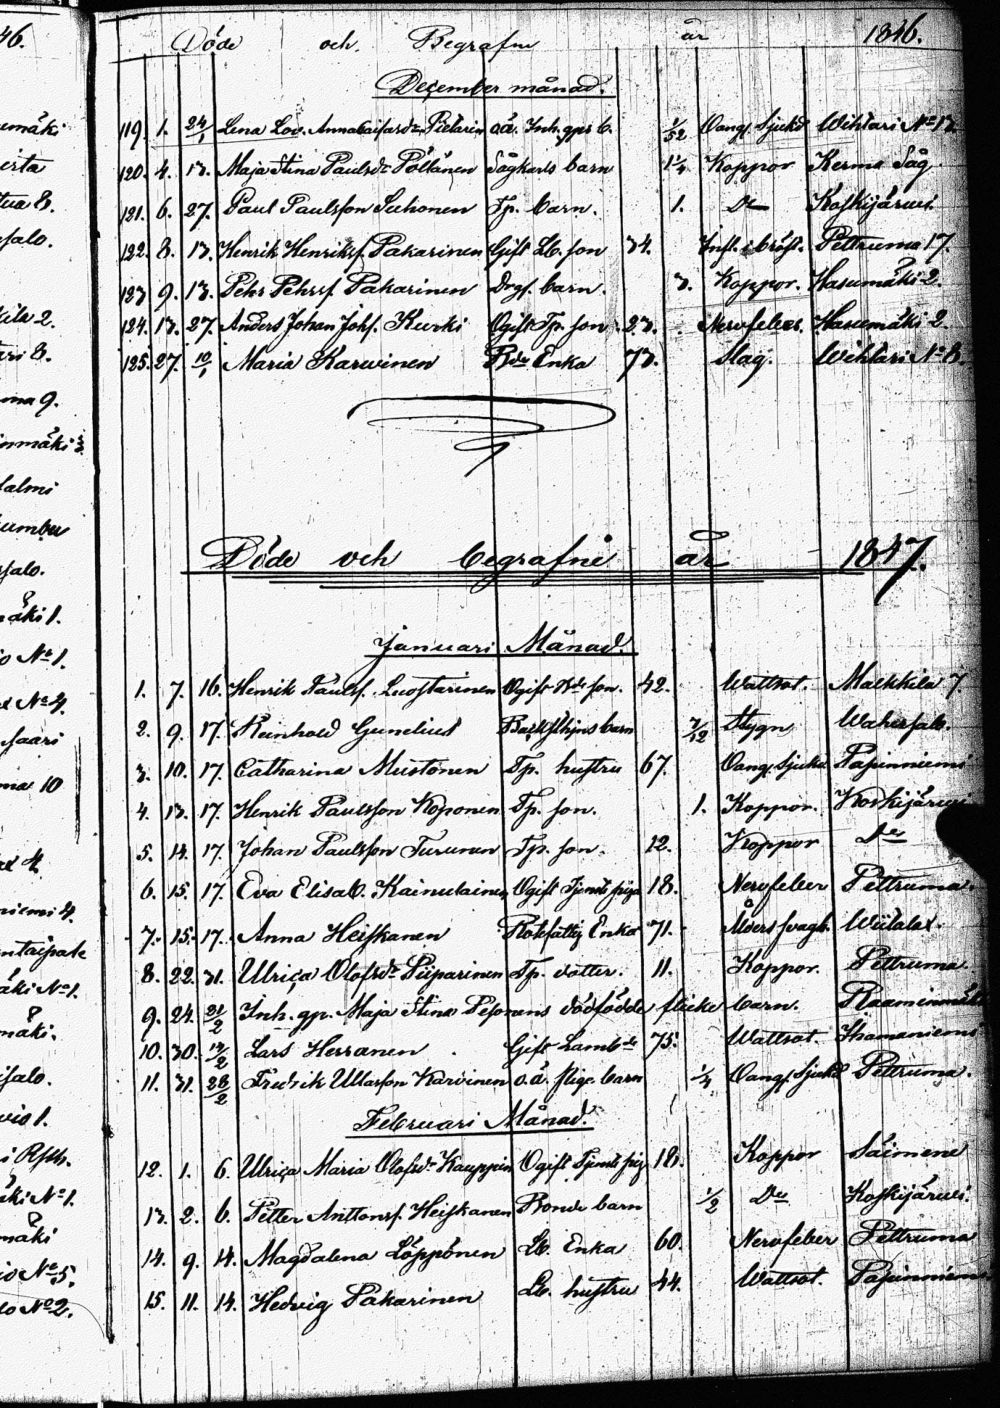 Döde och Begrafne år 1846.
December månad.
119. 1. 24/1 Lena Lov. Annabaisasdr Pietarin o.ä. Inh. gps b. 1/52 Oang. Sjukd Wihtari No 12
120. 4. 13. Maja Stina Paulsdr Pöllänen Sågkarls barn 1 1/4 Koppor Kerma Såg
121. 6. 27. Paul Paulsson Suhonen Tp. barn. 1. Do Koskijärvi
122. 8. 13. Henrik Henriksf. Pakarinen Gift Lb. son 34. Infl. i bröst. Pettruma 17.
123 9. 13. Pehr Pehrsf. Pakarinen Drgs. barn. 3. Koppor. Hasumäki 2.
124. 13. 27. Anders Johan Johf. Kurki Ogift Tp. son 23. Nervfeber. Hasumäki 2.
125. 27. 10/1 Maria Karvinen Bde Enka 73. Slag. Wihtari No 8.
Döde och begrafne år 1847.
Januari Månad
1. 7. 16. Henrik Paulsf. Luostarinen Ogift Bde son. 42. Wattsot. Malkkila 7
2. 9. 17. Reinhold Gunelius barn 7/12 Stygn Wahersalo.
3. 10. 17. Catharina Mustonen Tp. hustru 67. Oang. Sjukd Papinniemi
4. 13. 17. Henrik Paulsson Koponen Tp. son. 1. Koppor. Koskijärvi
5. 14. 17. Johan Paulsson Turunen Tp. son. 12. Koppor Do
6. 15. 17. Eva Elisab. Kainulainen Ogift Tjenstepiga 18. Nervfeber Pettruma.
7. 15. 17. Anna Heiskanen Rotefattig Enka 71. Ålders svagh. Wiitalax.
8. 22. 31. Ulrica Olofsdr Piiparinen Tp. dotter. 11. Koppor. Pettruma.
9. 24. 21/2 Inh. gp. Maja Stina Pesonens dödfödde flicke barn. Raaminmäki
10. 30. 14/2 Lars Herranen Gift Lambde 75. Wattsot. Thamaniemi
11. 31. 28/2 Fredrik Ullasson Karvinen o.ä. pige barn 1/4 Oang. Sjukd Pettruma.
Februari Månad.
12. 1. 6. Ulrica Maria Olofsdr Kauppin Ogift Tjenste pig 18. Koppor Säimene
13. 2. 6. Petter Anttonsf. Heiskanen Bonde barn 1/2 Do Koskijärvi.
14. 9. 14. Magdalena Löppönen Lb. Enka 60. Nervfeber Pettruma
15. 11. 14. Hedvig Pakarinen Lb. hustru 44. Wattsot. Papinniemi